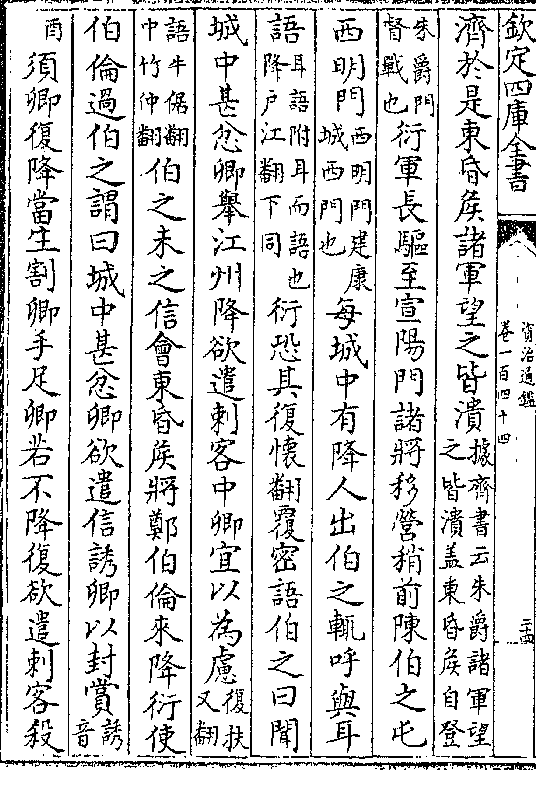 欽定四庫全書
資治通鑑
卷一百四十四
三十四
濟於是東昏侯諸軍望之皆潰據齊書云朱爵諸軍望之皆潰盖東昏侯自登
朱爵門督戰也衍軍長驅至宣陽門諸將移營稍前陳伯之屯
西明門西明門建康城西門也每城中有降人出伯之輒呼與耳
語耳語附耳而語也降户江翻下同衍恐其復懷翻覆密語伯之曰聞
城中甚忿卿舉江州降欲遣刺客中卿宜以為慮復扶又翻
語牛倨翻中竹仲翻伯之未之信會東昏侯將鄭伯倫來降衍使
伯倫過伯之謂曰城中甚忿卿欲遣信誘卿以封賞誘音
酉須卿復降當生割卿手足卿若不降復欲遣刺客殺